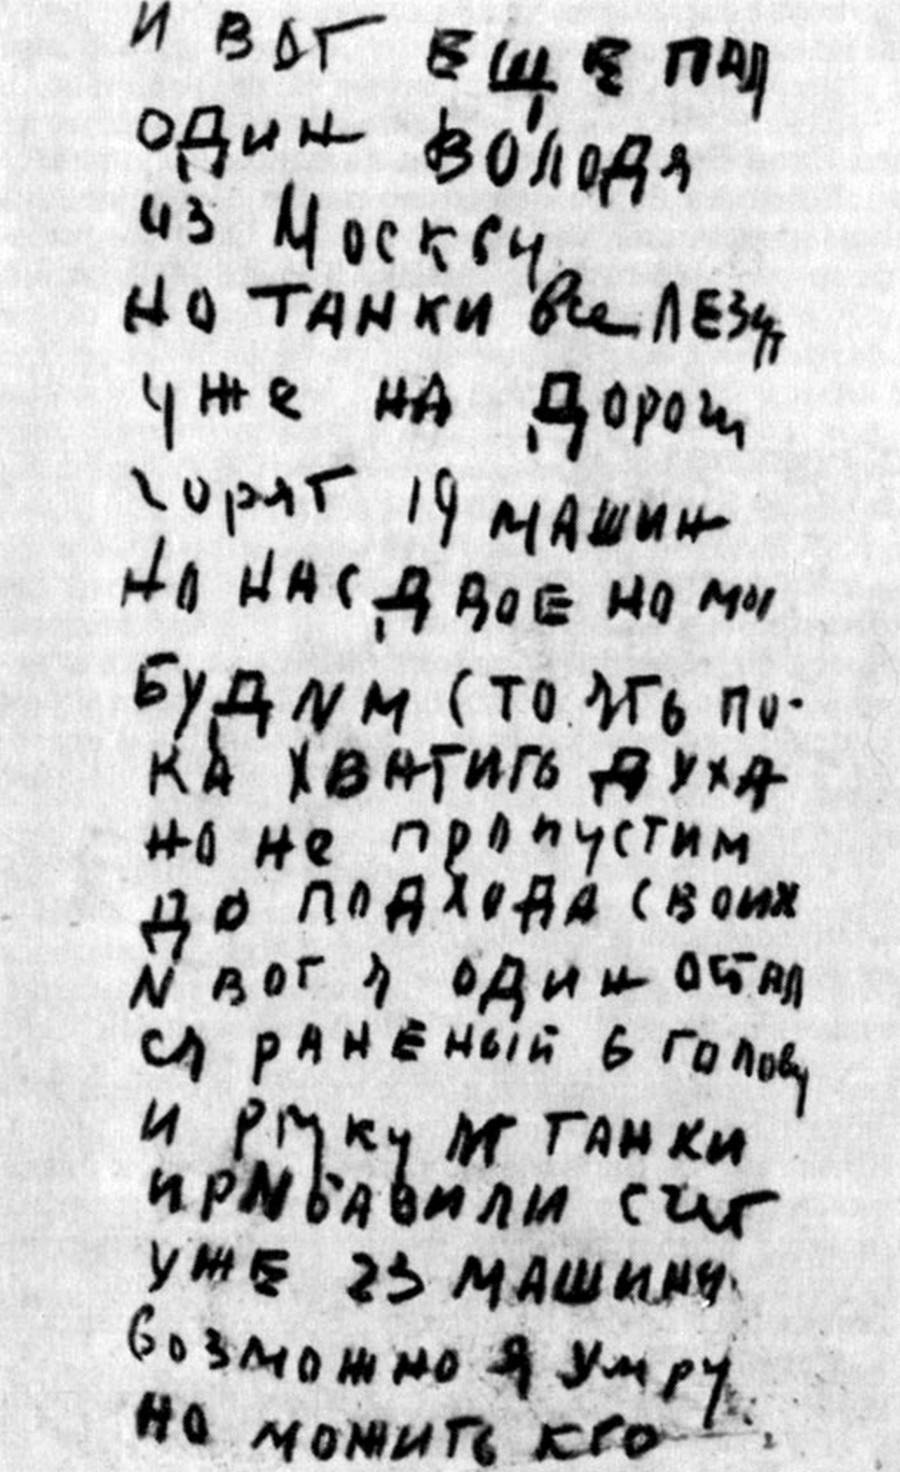 И ВОТ ЕЩЕ ПАЛ
ОДИН ВОЛОДЯ
ИЗ МОСКВЫ
НО ТАНКИ Все ЛЕЗУТ
Уже НА ДОРОГИ
горят 19 МАШИН
НО НАС ДВОЕ НО МЫ
БУДИМ СТОЯТЬ ПО-
КА ХВАТИТЬ ДУХА
НО Не ПРОПУСТИМ
ДО ПОДХОДА СВОИХ
И ВОТ Я ОДИН ОСТАЛ
СЯ РАНЕНЫЙ в ГОЛОВУ
И РУКУ И ТАНКИ
ПРИБАВИЛИ СЧЕТ
УЖЕ 23 МАШИНЫ
Возможно Я УМРУ
НО МОЖИТЬ КТО